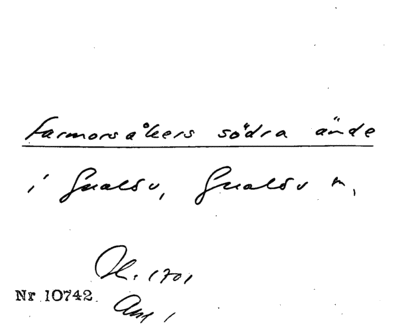 Farmorsåkers södra ände
i Gualöv, Gualöv n,
H. 1701
Nr 10742
Ant 1